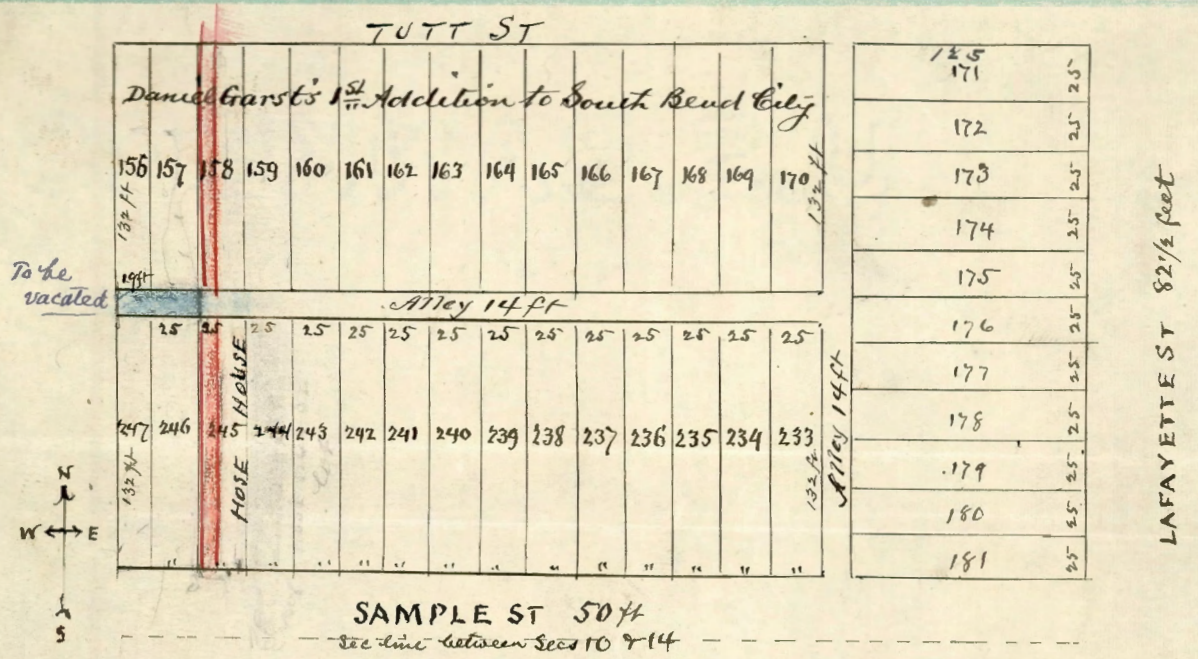 TUTT ST
Daniel Garst's 1st Addition to South Bend City
156 157 158 159 160 161 162 163 164 165 166 167 168 169 170
132 ft
132 ft
19ft
To be
vacated
Alley 14 ft
25 25 25 25 25 25 25 25 25 25 25 25 25 25
HOSE HOUSE
247 246 245 244 243 242 241 240 239 238 237 236 235 234 233
132 ft
132 ft.
" " " " " " " " " " " "
Alley 14ft
125
171 25
172 25
173 25
174 25
175 25
176 25
177 25
178 25
179 25
180 25
181 25
LAFAYETTE ST 82 1/2 feet
N
W E
S
SAMPLE ST 50 ft
Sec line between Secs 10 & 14